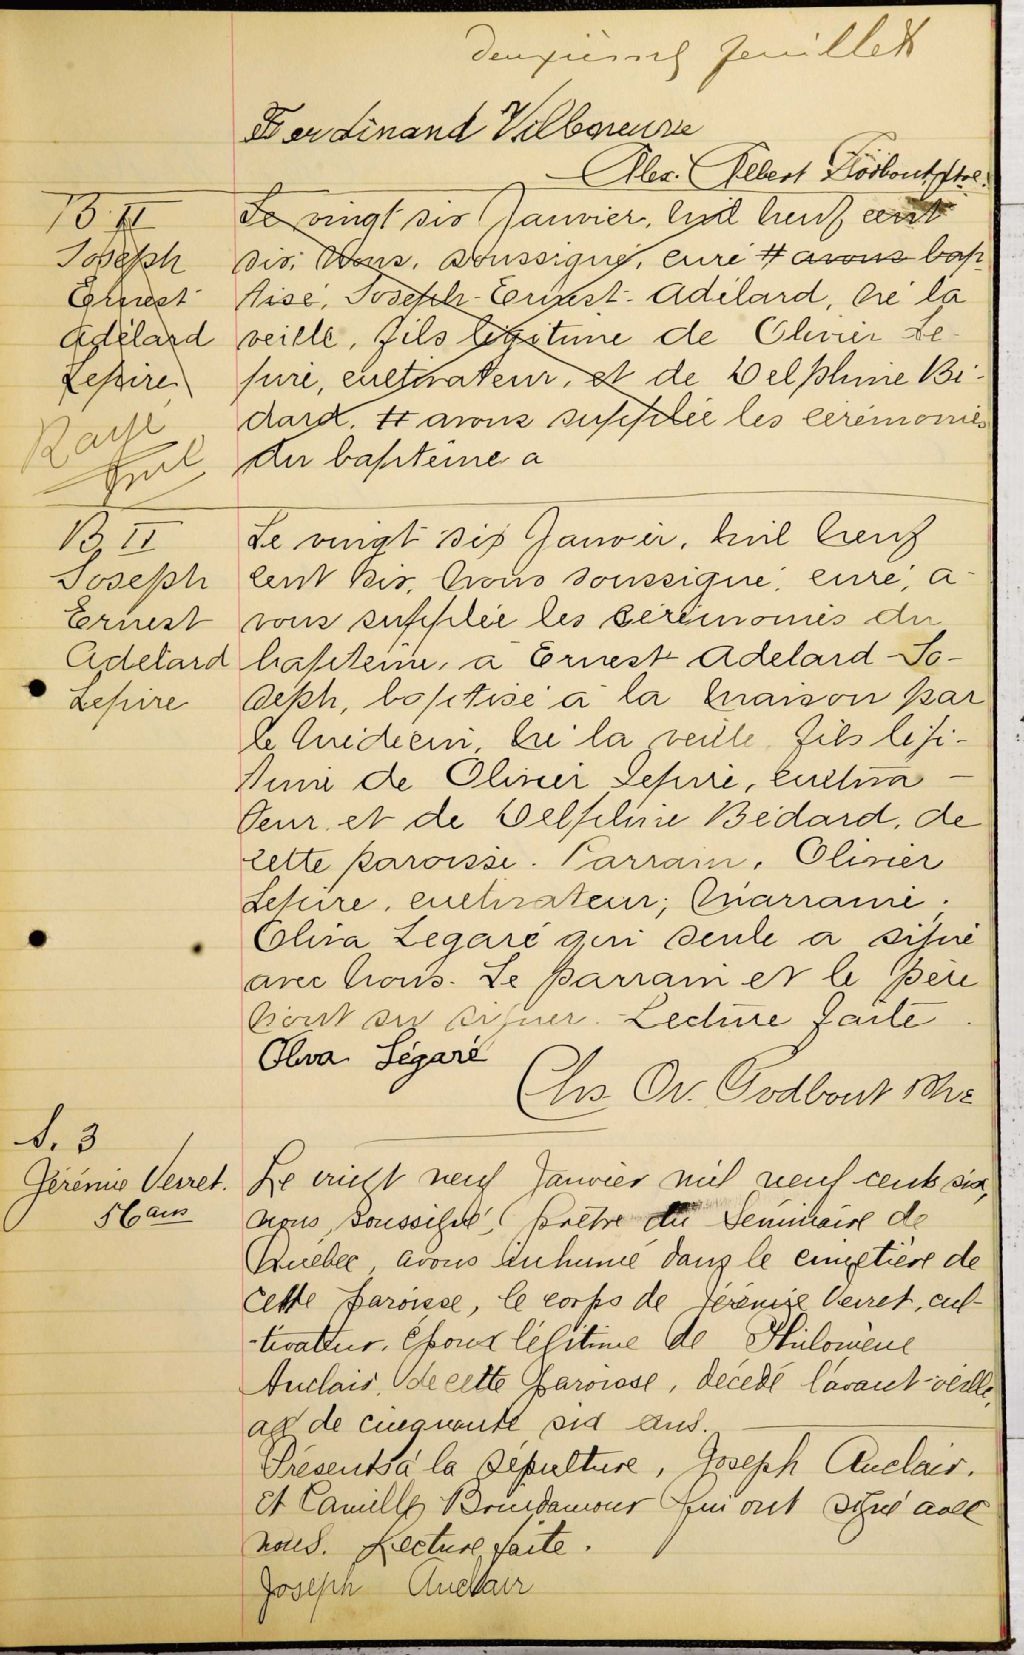 deuxième feuillet
Ferdinand Villeneuve
Alex. Albert Godbout, ptre.
B II
Joseph
Ernest
Adélard
Lepire
Rayé
Le vingt six Janvier, mil neuf cent
six, Nous, soussigné, curé # avons bap-
tisé, Joseph-Ernest-Adélard, né la
veille, fils légitime de Olivier Le-
pire, cultivateur, et de Delphine Bé-
dard. # avons supplée les cérémonies
du baptême a
B II
Joseph
Ernest
Adelard
Lepire
Le vingt six Janvier, mil neuf
cent six, nous soussigné, curé, a-
vons supplée les cérémonies du
baptême, à Ernest Adelard-Jo-
seph, baptisé à la maison par
le médecin, né la veille fils légi-
time de Olivier Lepire, cultiva-
teur et de Delphine Bédard, de
cette paroisse. Parrain, Olivier
Lepire, cultivateur; Marraine,
Oliva Legaré qui seule a signé
avec nous. Le parrain et le père
n'ont su signer. Lecture faite.
Oliva Légaré
Chs Ov. Godbout Ptre
S. 3
Jérémie Verret.
56 ans
Le vingt neuf Janvier mil neuf cent six,
nous soussigné, prêtre du Séminaire de
Québec, avons inhumé dans le cimetière de
cette paroisse, le corps de Jérémie Verret, cul-
-tivateur, époux légitime de Philomène
Auclair, de cette paroisse, décédé l'avant-veille,
agé de cinquante six ans.
Présents à la sépulture, Joseph Auclair,
et Camille Brindamour qui ont signé avec
nous. Lecture faite.
Joseph Auclair